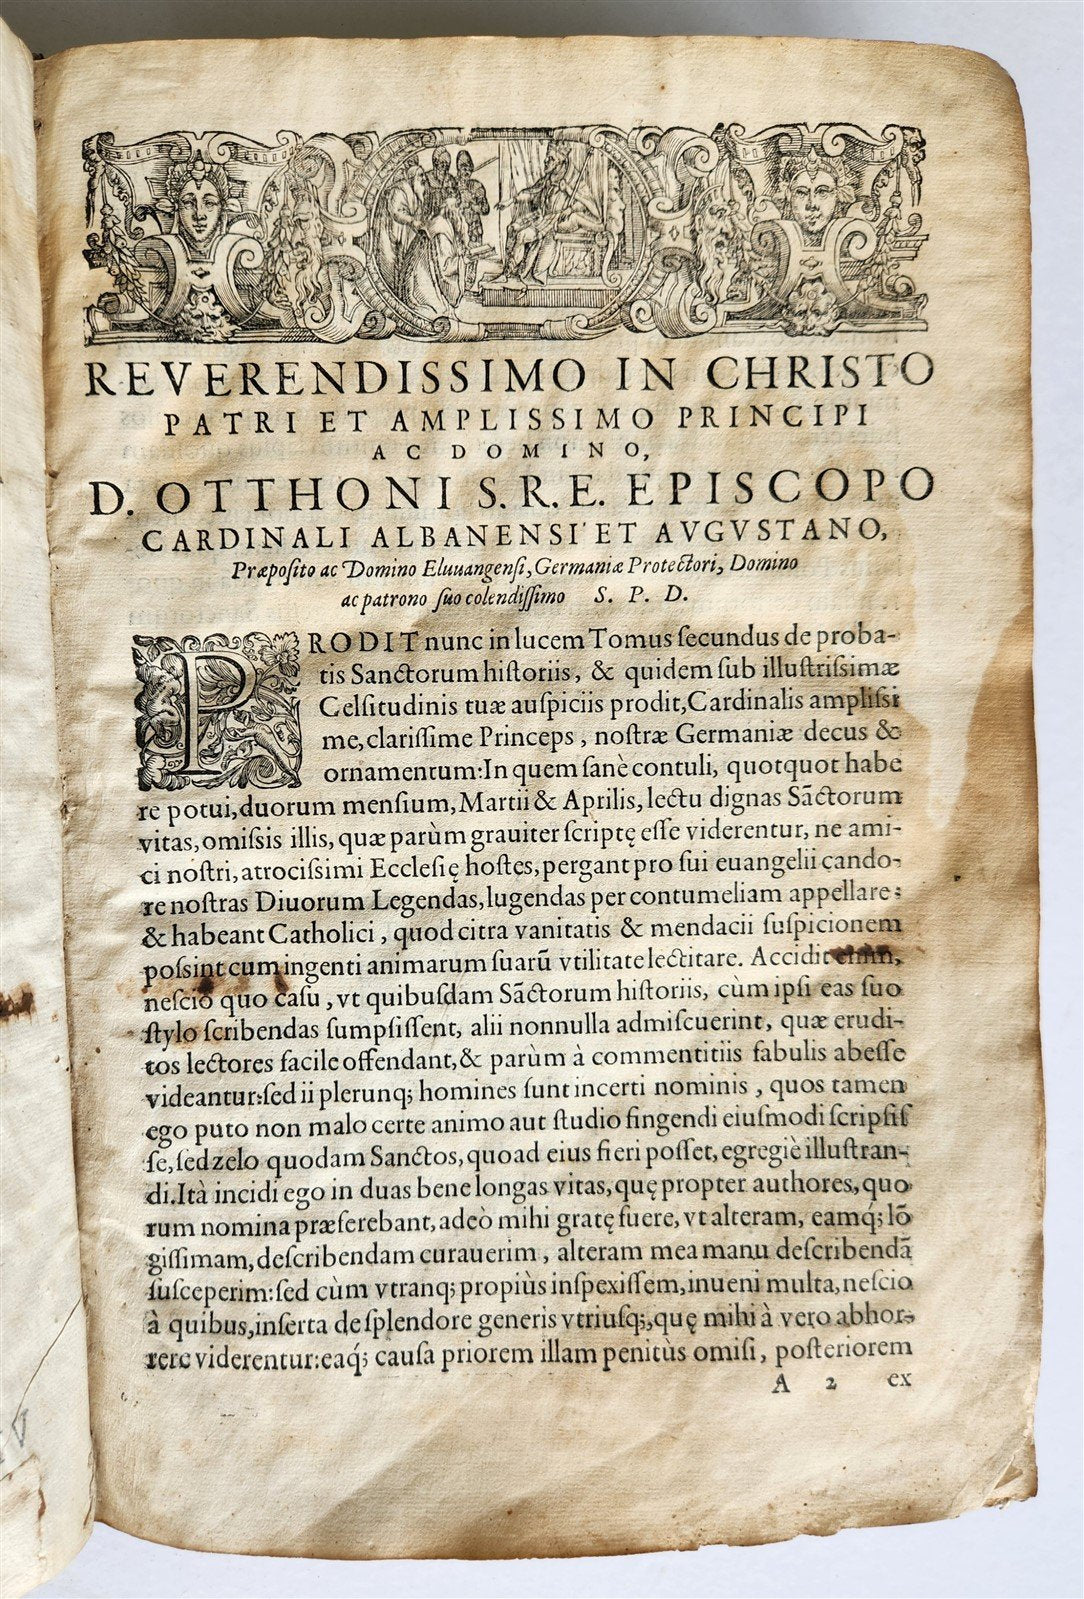 REVERENDISSIMO IN CHRISTO
PATRI ET AMPLISSIMO PRINCIPI
AC DOMINO,
D. OTTHONI S. R. E. EPISCOPO
CARDINALI ALBANENSI ET AVGVSTANO,
Præposito ac Domino Eluuangensi, Germaniæ Protectori, Domino
ac patrono ſuo colendiſſimo S. P. D.
PRODIT nunc in lucem Tomus ſecundus de proba-
tis Sanctorum hiſtoriis, & quidem ſub illuſtriſsimæ
Celſitudinis tuæ auſpiciis prodit, Cardinalis ampliſsi
me, clariſsime Princeps, noſtræ Germaniæ decus &
ornamentum: In quem ſanè contuli, quotquot habe
re potui, duorum menſium, Martii & Aprilis, lectu dignas Sãctorum
vitas, omiſsis illis, quæ parùm grauiter ſcriptę eſſe viderentur, ne ami-
ci noſtri, atrociſsimi Eccleſię hoſtes, pergant pro ſui euangelii cando-
re noſtras Diuorum Legendas, lugendas per contumeliam appellare:
& habeant Catholici, quod citra vanitatis & mendacii ſuſpicionem
poſsint cum ingenti animarum ſuarũ vtilitate lectitare. Accidit enim,
neſcio quo caſu, vt quibuſdam Sãctorum hiſtoriis, cùm ipſi eas ſuo
ſtylo ſcribendas ſumpſiſſent, alii nonnulla admiſcuerint, quæ erudi-
tos lectores facile offendant, & parùm à commentitiis fabulis abeſſe
videantur: ſed ii plerunq; homines ſunt incerti nominis, quos tamen
ego puto non malo certe animo aut ſtudio fingendi eiuſmodi ſcripſiſ
ſe, ſed zelo quodam Sanctos, quoad eius fieri poſſet, egregiè illuſtran-
di. Ità incidi ego in duas bene longas vitas, quę propter authores, quo
rum nomina præferebant, adeò mihi gratę fuere, vt alteram, eamq; lõ
giſsimam, deſcribendam curauerim, alteram mea manu deſcribendã
ſuſceperim: ſed cùm vtranq; propiùs inſpexiſſem, inueni multa, neſcio
à quibus, inſerta de ſplendore generis vtriuſq;, quę mihi à vero abhor-
rere viderentur: eaq; cauſa priorem illam penitùs omiſi, poſteriorem
A 2 ex